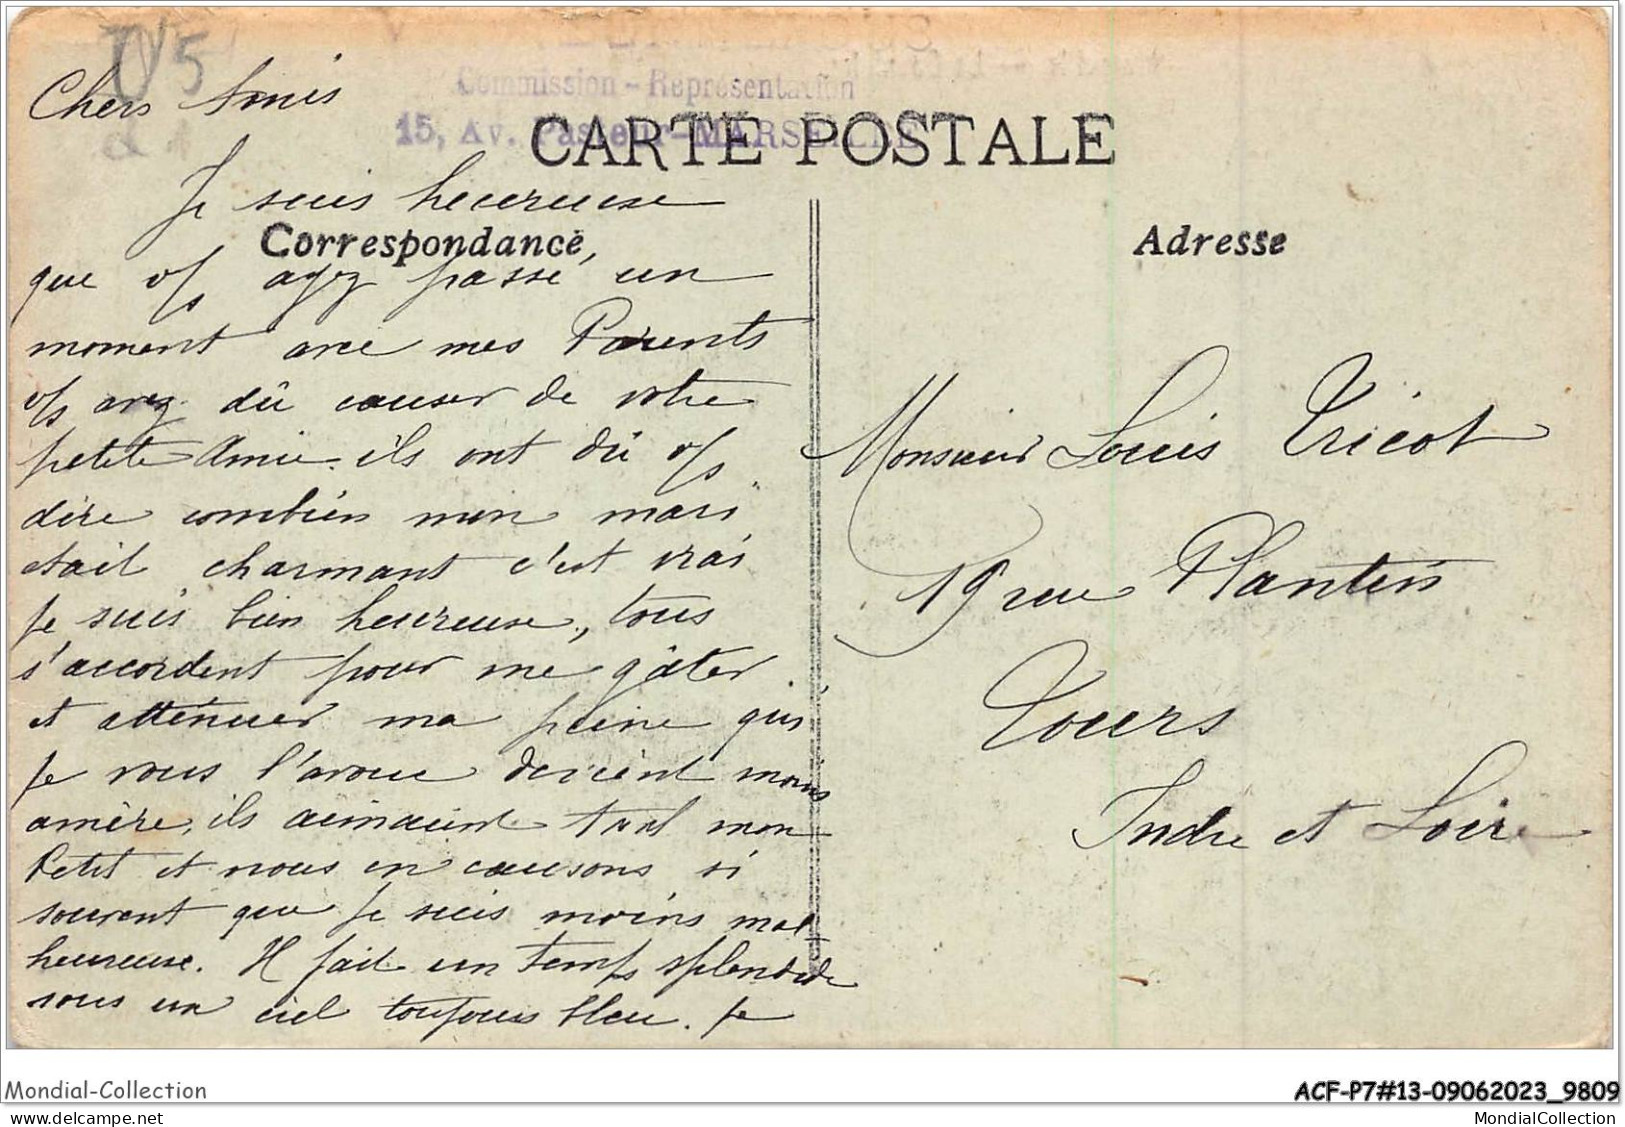 Chers Amis
Commission - Représentation
15, Av. Pasteur - MARSEILLE
CARTE POSTALE
Je suis heureuse
Correspondance
que v/s ayez passé un
moment avec mes Parents
v/s avez dû causer de votre
petite Amie. ils ont dû v/s
dire combien mon mari
était charmant c'est vrai
Je suis bien heureuse, tous
s'accordent pour me gâter.
et atténuer ma peine qui
Je vous l'avoue devient moins
amère, ils aimaient tant mon
Petit et nous en causons si
souvent que Je suis moins mal
heureuse. Il fait un temps splendide
sous un ciel toujours bleu. Je
Adresse
Monsieur Louis Tricot
19 rue Plantin
Tours
Indre et Loire
Mondial-Collection
ACF-P7#13-09062023_9809
MondialCollection